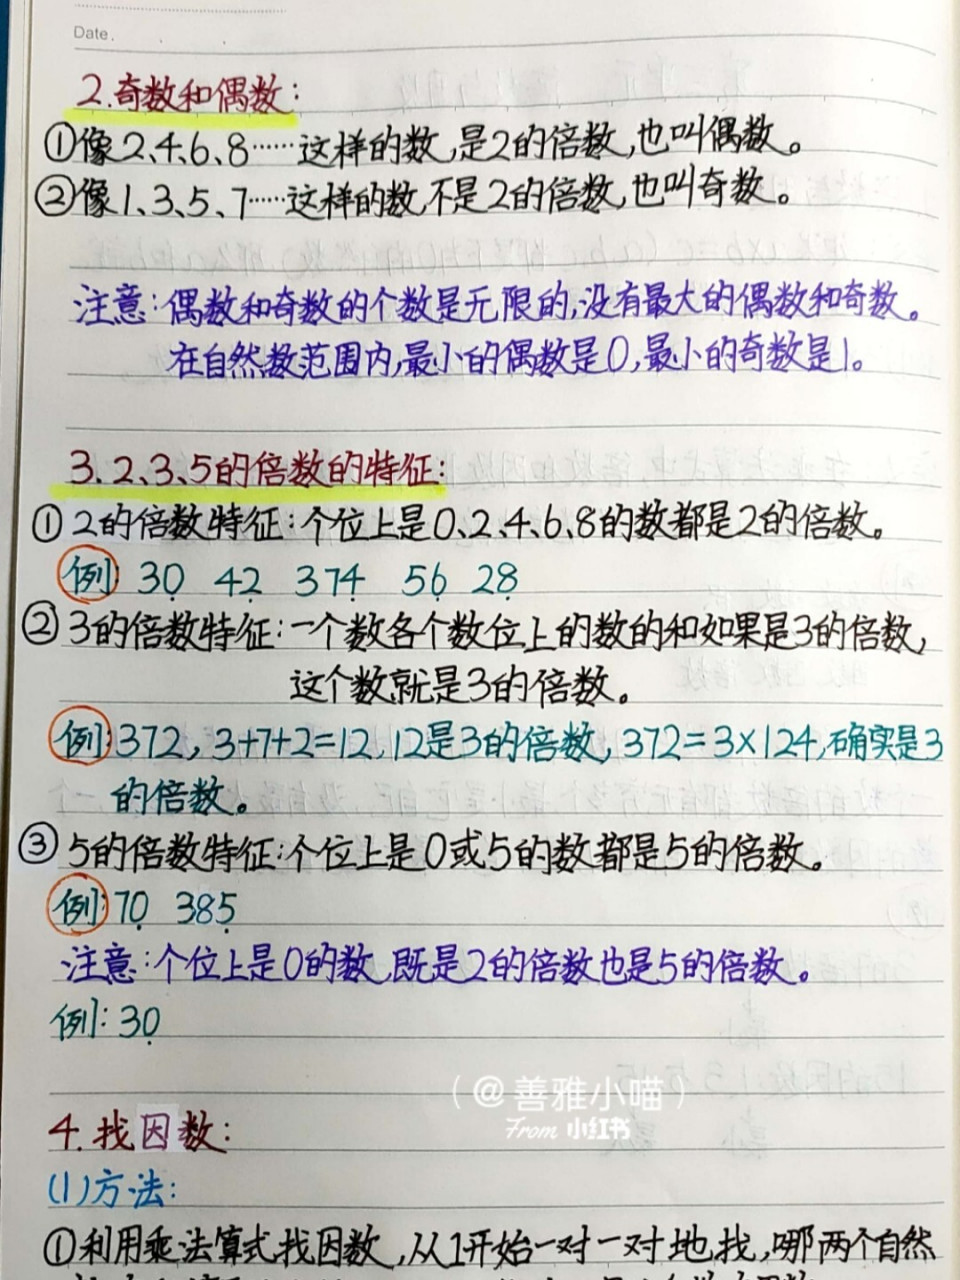 Date.
2.奇数和偶数:
①像2、4、6、8……这样的数,是2的倍数,也叫偶数。
②像1、3、5、7……这样的数,不是2的倍数,也叫奇数。
注意:偶数和奇数的个数是无限的,没有最大的偶数和奇数。
在自然数范围内,最小的偶数是0,最小的奇数是1。
3.2、3、5的倍数的特征:
①2的倍数特征:个位上是0、2、4、6、8的数都是2的倍数。
例: 30 42 374 56 28
②3的倍数特征:一个数各个数位上的数的和如果是3的倍数,
这个数就是3的倍数。
例:372,3+7+2=12,12是3的倍数,372=3×124,确实是3
的倍数。
③5的倍数特征:个位上是0或5的数都是5的倍数。
例:70 385
注意:个位上是0的数,既是2的倍数也是5的倍数。
例:30
(@善雅小喵)
From 小红书
4.找因数:
(1)方法:
①利用乘法算式找因数,从1开始一对一对地找,哪两个自然